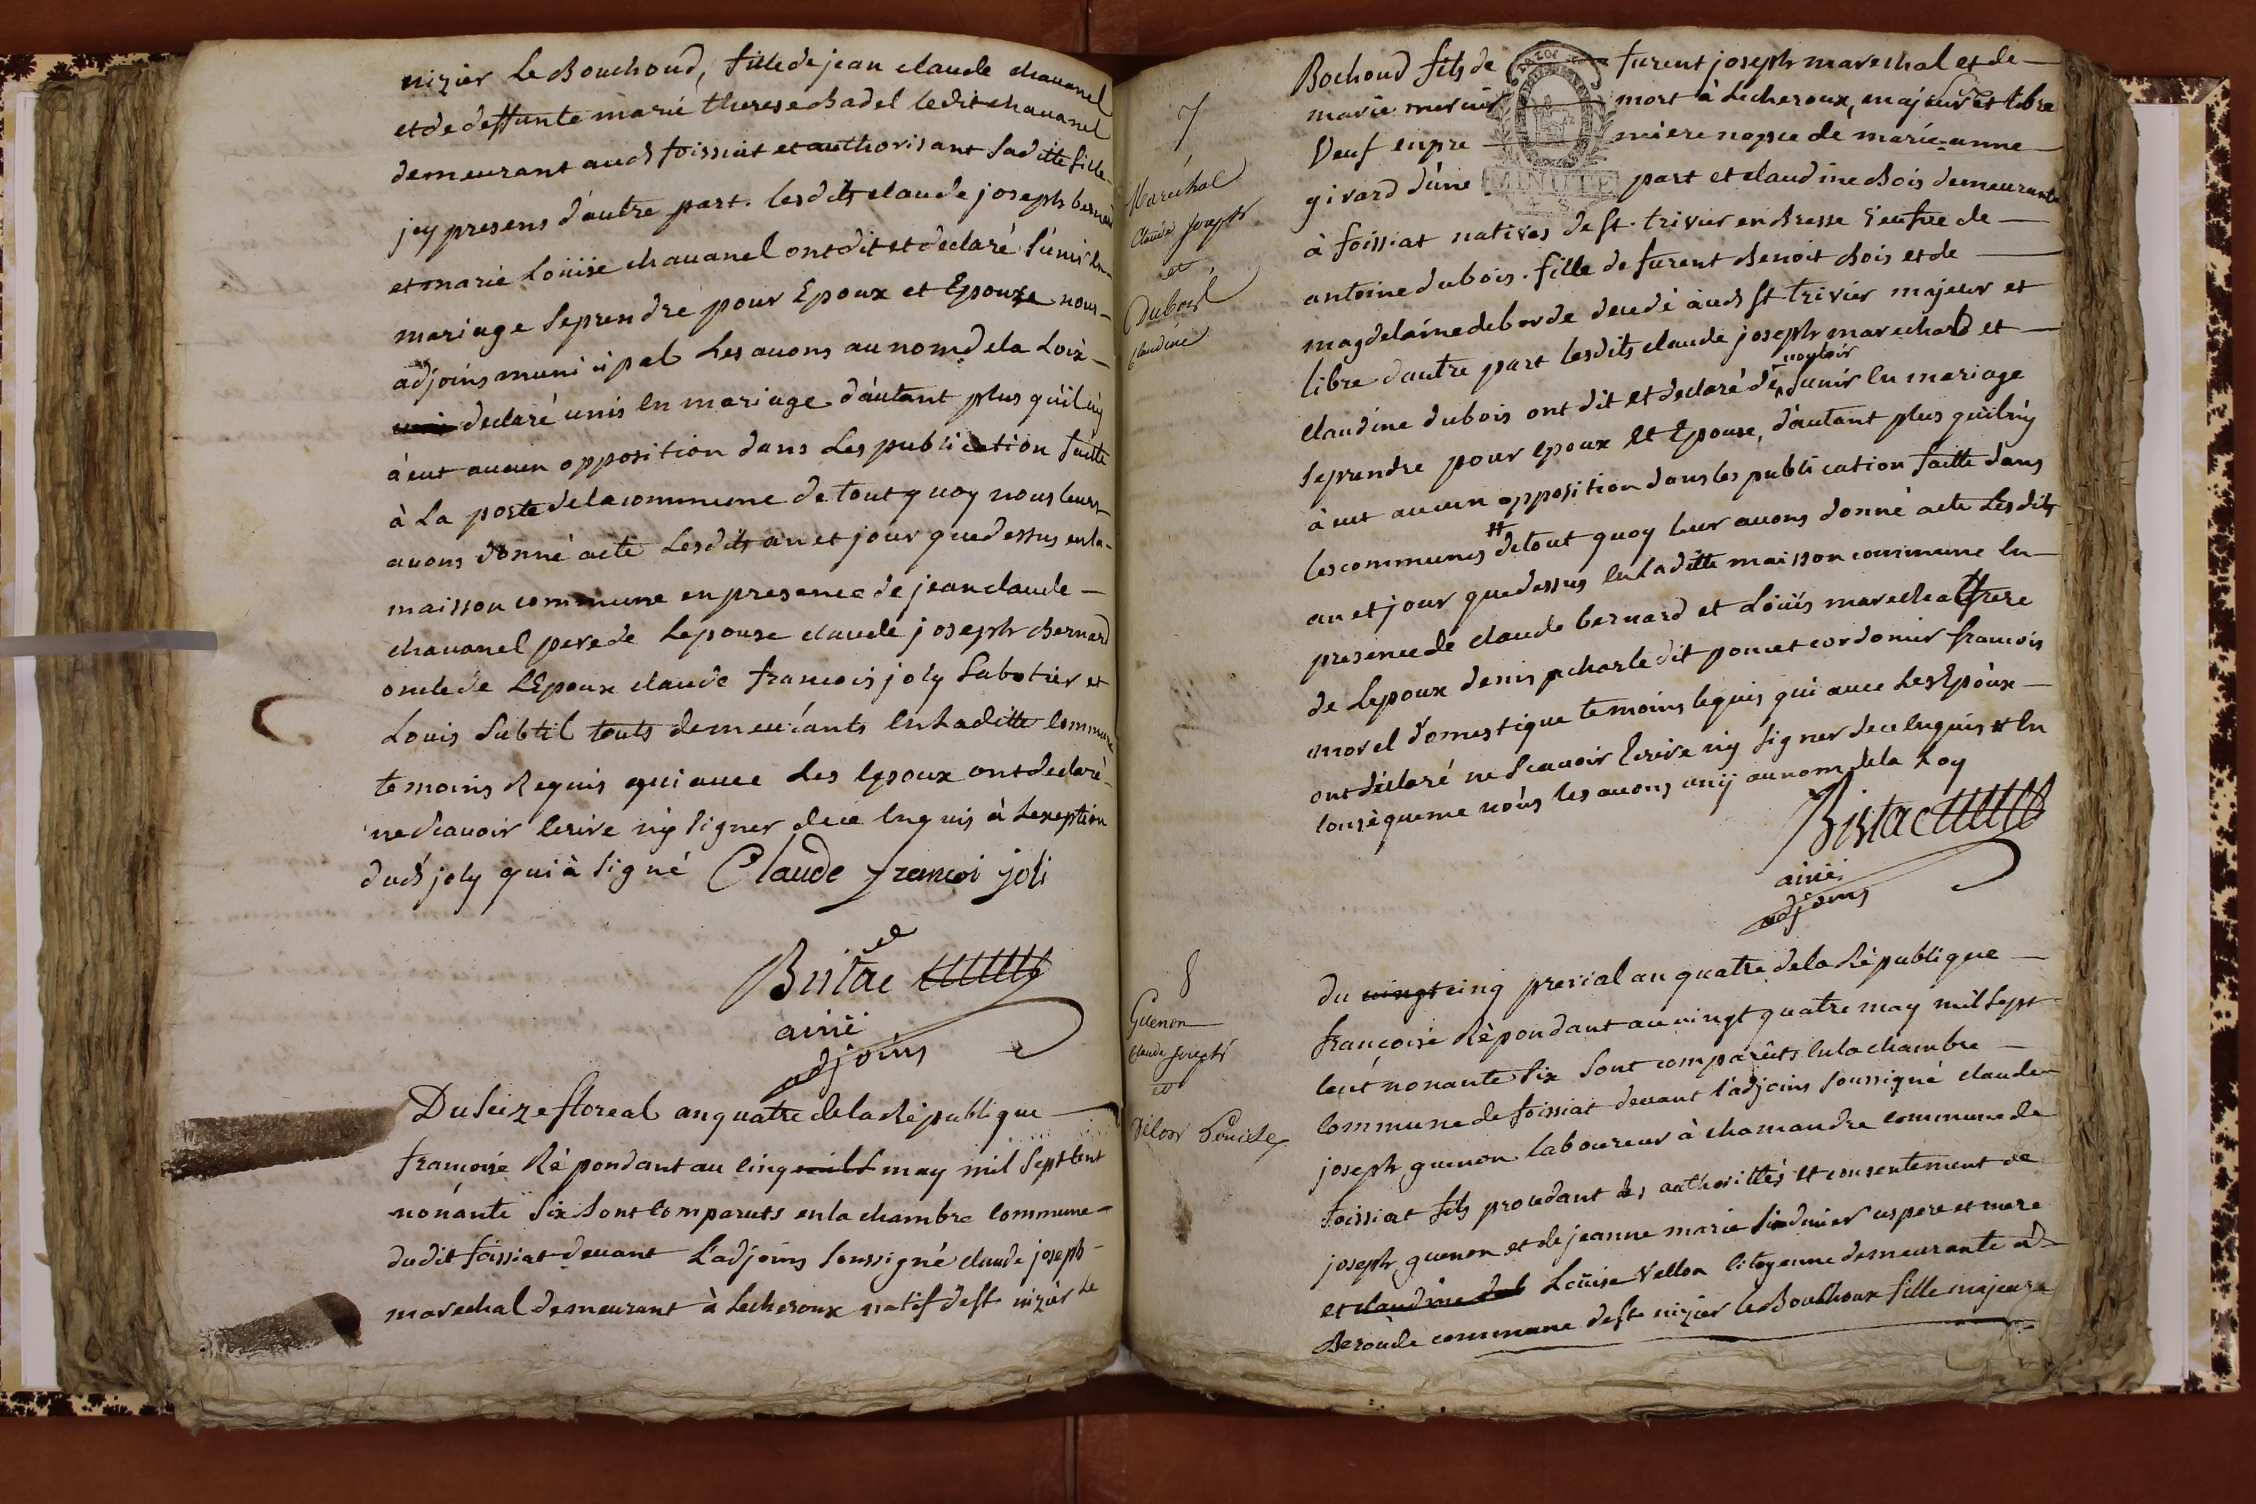 nizier Le Bouchoud, fille de jean claude chavanel
et de deffunte marie therese Badel ledit chavanel
demeurant aud foissiat et authorisant sa ditte fille
jcy presens d'autre part. lesdits claude joseph bernard
et marie Loüise chavanel ont dit et declaré s'unir en
mariage se prendre pour Epoux et Epouze nous
adjoins municipal Les avons au nom de la Loix
declaré unis en mariage d'autant plus qu'il n'y
à eut aucun opposition dans Les publication faitte
à La porte de la commune de tout quoy nous leurs
avons donné acte Lesdits an et jour que dessus en la
maisson commune en presence de jean claude
chavanel pere de Lepouse claude joseph Bernard
oncle de LEpoux claude francois joly Sabotier et
Louis Subtil touts demeurants en La ditte commune
temoins Requis qui avec Les Epoux ont declaré
ne scavoir Ecrire ny signer de ce Enquis à Lexeption
dud joly qui à signé Claude francoi joli
Bistac
ainé
adjoins
Du seize floreal an quatre de la République
francoise Répondant au cinq may mil sept cent
nonante six sont comparuts en la chambre commune
dudit foissiat devant L'adjoins soussigné claude joseph
marechal demeurant à Lescheroux natif de st nizier Le
7
Maréchal
Claude joseph
et
Dubois
claudine
Bochoud fils de furent joseph marechal et de
marie mercier mort à Lecheroux, majeur et libre
Veuf en pre miere nopce de marie-anne
givard d'une part et claudine Bois demeurante
MINUTE
à foissiat natives de st. trivier en Bresse veufve de
antoine dubois. fille de furent Benoit Bois et de
magdelaine deborde decedé aud st trivier majeur et
libre d'autre part lesdits claude joseph marechald et
claudine dubois ont dit et declaré de vouloir s'unir En mariage
se prendre pour epoux Et Epouse, d'autant plus qu'il n'y
à eut aucun opposition dans les publication faitte dans
les communes de tout quoy leur avons donné acte Lesdits
an et jour que dessus En La ditte maisson commune En
presence de claude bernard et Loüis marechal frere
de Lepoux denis pcharle dit poncet cordonier francois
morel domestique temoins requis qui avec Les Epoux
ont déclaré ne scavoir Ecrire ny signer de ce Enquis # En
consequence nous les avons unÿ au nom de la Loy
Bistac
ainé
adjoins
8
Guenon
Claude joseph
et
Velon Louise
du cinq prerial an quatre de la République
francoise Répondant au vingt quatre may mil sept
cent nonante six sont comparûts En la chambre
commune de foissiat devant l'adjoins soussigné claude
joseph guenon laboureur à chamandre commune de
foissiat fils procedant des authorittés et consentement de
joseph guenon et de jeanne marie ses pere et mere
et Loüise Vellon citoyenne demeurante à
Beroude commune de st nizier le Bouchoux fille majeure